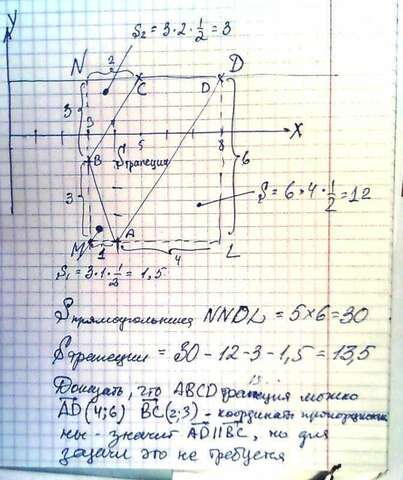 У
S₂ = 3·2·1/2 = 3
N 2 D
C D
3
3 5 8 X
B S трапеции 6
3 S = 6·4·1/2 = 12
M A L
1 4
S₁ = 3·1·1/2 = 1,5
S прямоугольника NNDL = 5×6 = 30
S трапеции = 30 - 12 - 3 - 1,5 = 13,5
Доказать, что ABCD трапеция можно
AD (4;6) BC (2;3) - координаты пропорциональ
ны - значит AD || BC, но для
задачи это не требуется